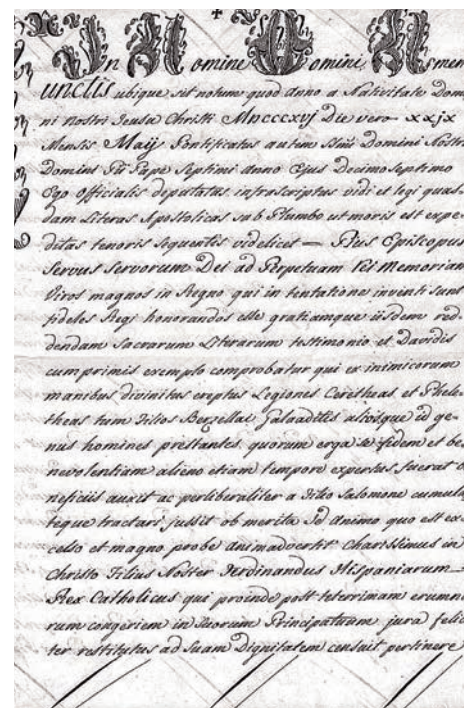 In Nomine Domini Amen
Cunctis ubique sit notum quod anno a Nativitate Dom
ni nostri Jesu Christi Mncccxvj Die vero xxjx
Mensis Maij Pontificatus autem Ssmi Domini Nostri
Domini Pii Pape Septimi anno Ejus Decimoseptimo
Ego Officialis deputatus infrascriptus vidi et legi quas-
dam Literas Apostolicas sub Plumbo ut moris est expe-
ditas tenoris sequentis videlicet — Pius Episcopus
Servus Servorum Dei ad Perpetuam Rei Memoriam
Viros magnos in Regno qui in tentatione inventi sunt
fideles Regi honorandos esse gratiamque iisdem red-
dendam Sacrarum Literarum testimonio et Davidis
cumprimis exemplo comprobatur qui ex inimicorum
manibus divinitus ereptus Legiones Ceretheas et Phele-
theas tum Filios Berzellai Galaaditis aliosque id ge-
nus homines prestantes, quorum erga se fidem et be-
nevolentiam alieno etiam tempore expertus fuerat
neficiis auxit ac perliberaliter a Filio Salomone cumula
teque tractari jussit ob merita Id animo quo est ex
celso et magno probe animadvertit Charissimus in
Christo Filius Noster Ferdinandus Hispaniarum
Rex Catholicus qui proinde post teterrimam erumna
rum congeriem in Suorum Principatuum jura felici
ter restitutus ad Suam Dignitatem censuit pertinere